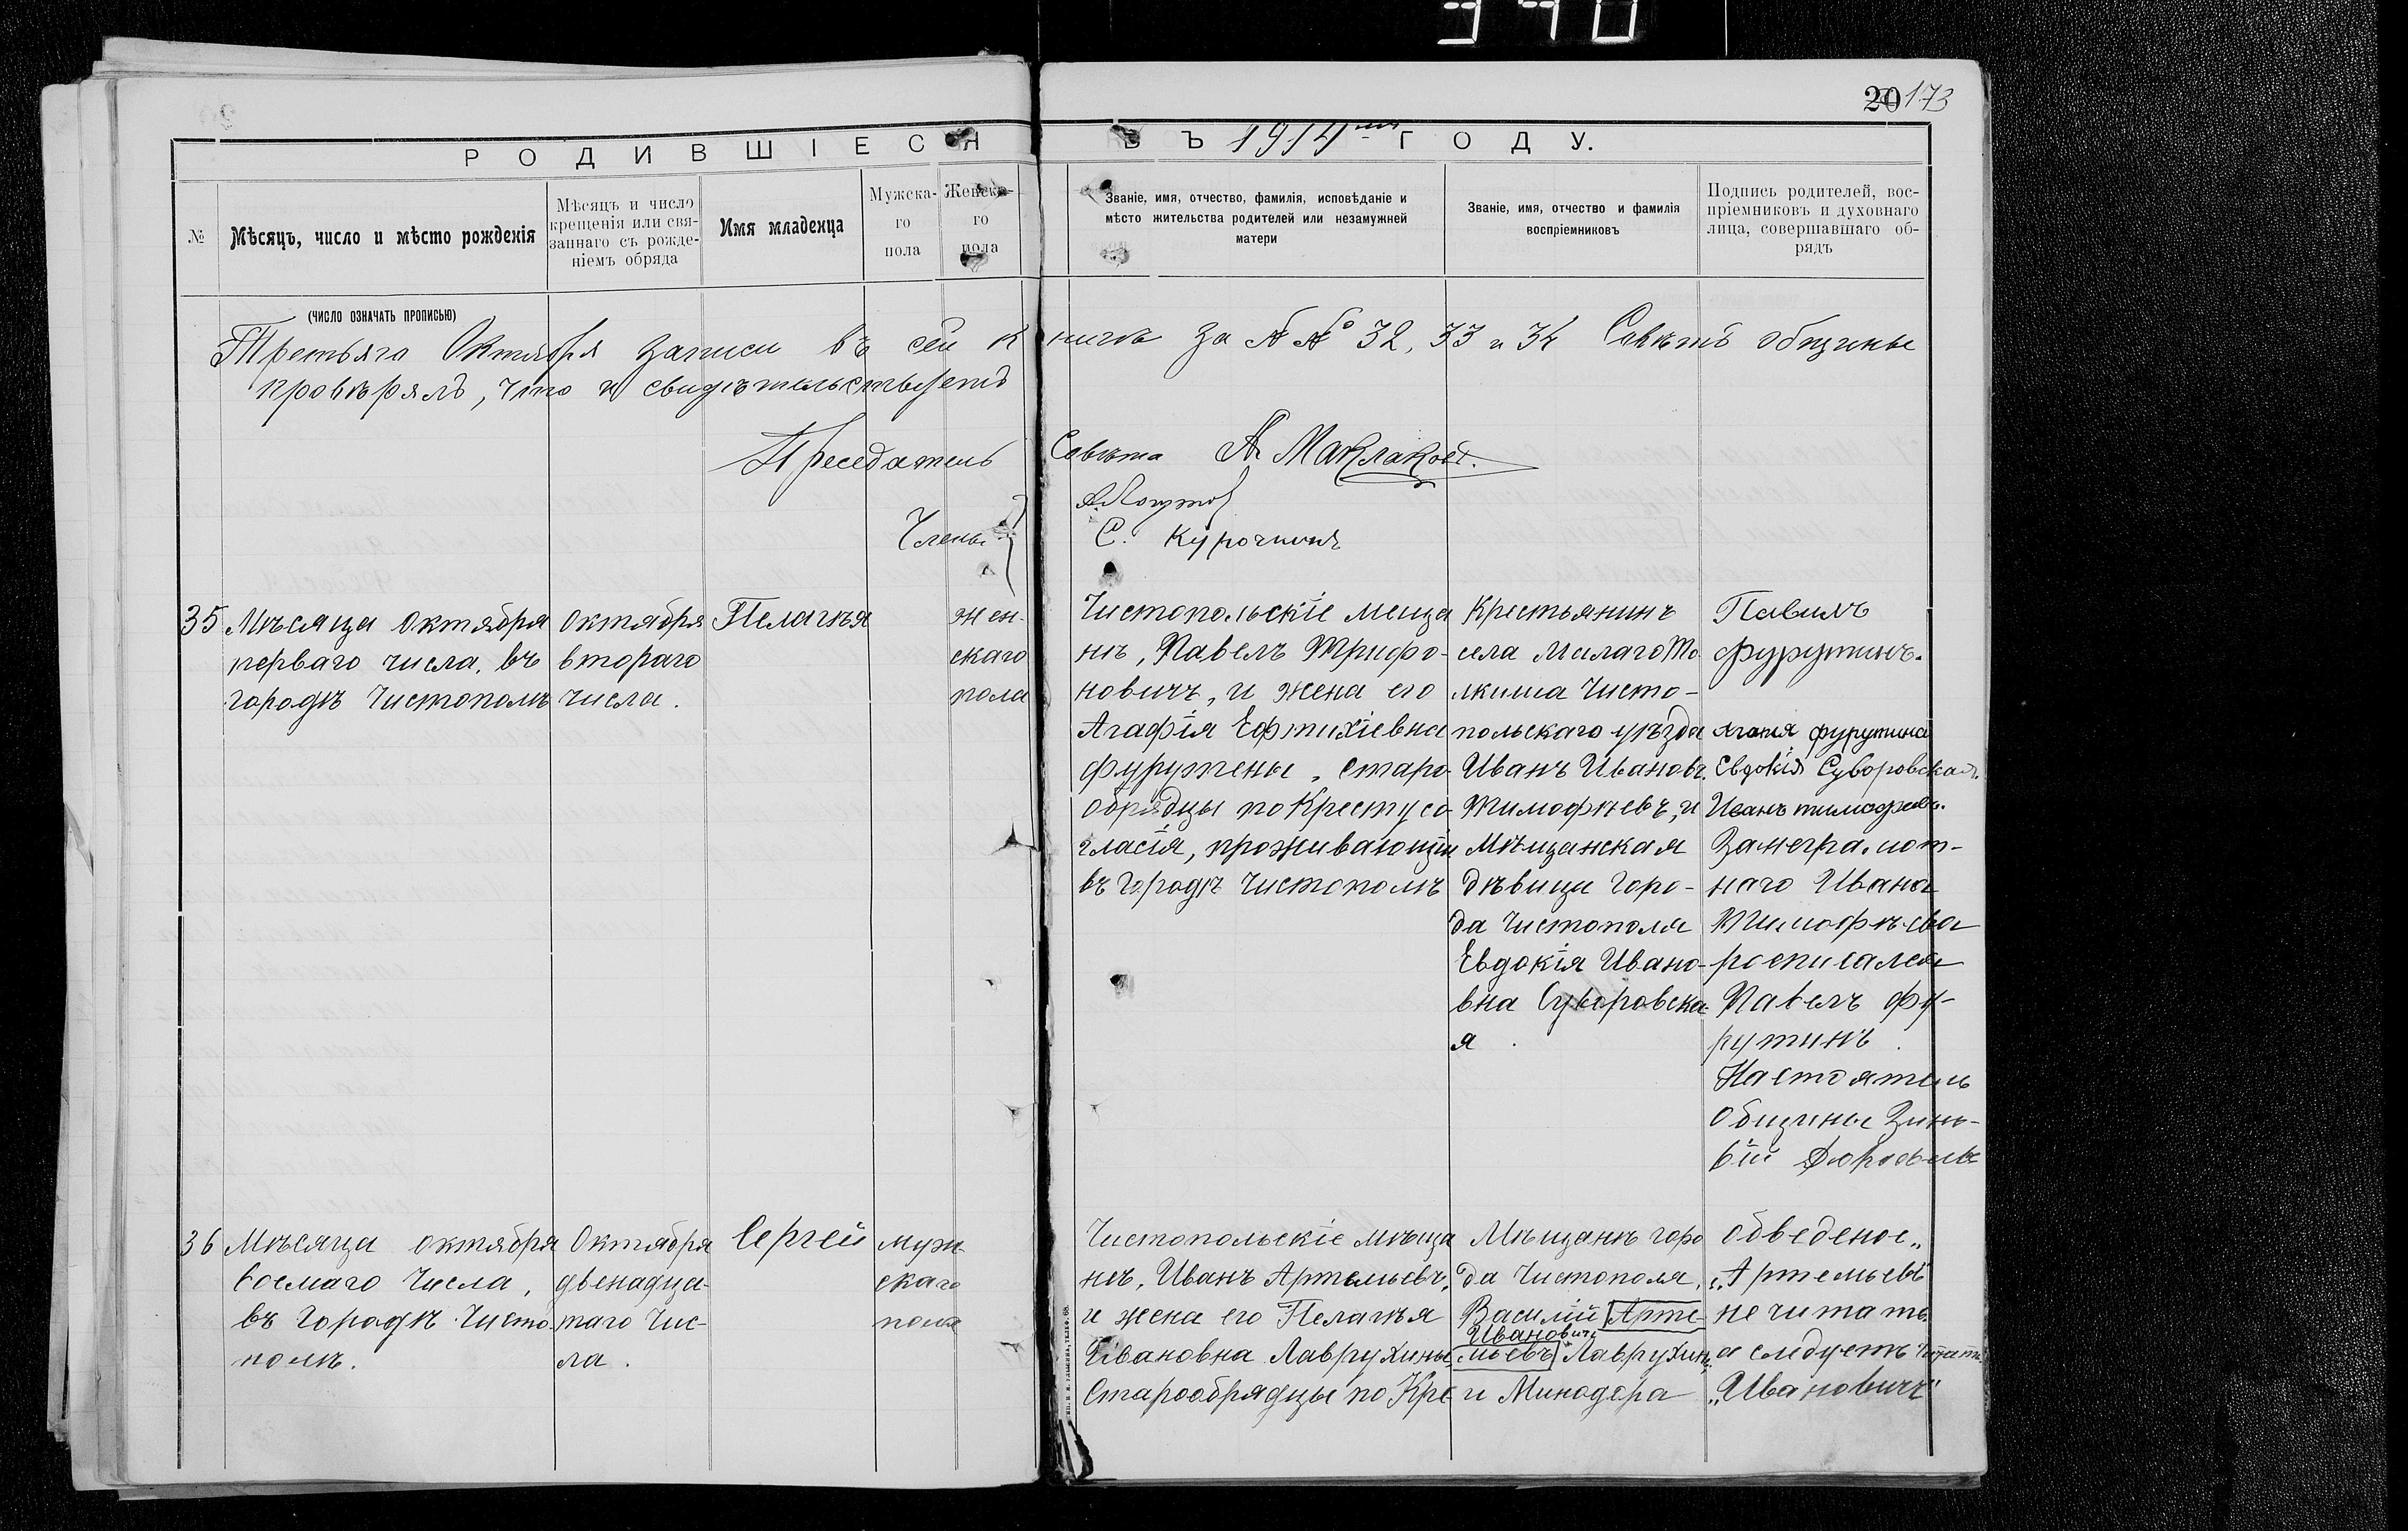 340
20 173
РОДИВШІЕСЯ ВЪ 1914мъ ГОДУ.
№
Мѣсяцъ, число и мѣсто рожденія
Мѣсяцъ и число
крещенія или свя-
заннаго съ рожде-
ніемъ обряда
Имя младенца
Мужска-
го
пола
Женска-
го
пола
Званіе, имя, отчество, фамилія, исповѣданіе и
мѣсто жительства родителей или незамужней
матери
Званіе, имя, отчество и фамилія
воспріемниковъ
Подпись родителей, вос-
пріемниковъ и духовнаго
лица, совершавшаго об-
рядъ
(число означать прописью)
Третьяго Октября записи въ сей книгѣ за №№ 32, 33 и 34 Совѣтъ общины
провѣрялъ, что и свидѣтельствуетъ
Преседатель Совѣта А. Маклаковъ.
Члены
С. Курочкинъ
35
Мѣсяца Октября
перваго числа, въ
городѣ Чистополѣ
Октября
втораго
числа.
Пелагѣя
жен-
скаго
пола
Чистопольскіе меща
нѣ, Павелъ Трифо-
новичъ, и жена его
Агафія Ефтихіевна
Фурутены, старо-
обрядцы по Кресту со
гласія, проживающіи
въ городѣ Чистополѣ
Крестьянинъ
села Малаго То
лкиша Чисто-
польскаго уѣзда
Иванъ Ивановъ
Тимофѣевъ, и
Мѣщанская
дѣвица горо-
да Чистополя
Евдокія Ивано-
вна Суворовска-
я.
Павилъ
Фурутинъ.
Агапія Фурутина
Евдокія Суворовская.
Иванъ тимофеевъ.
За неграмот-
наго Ивана
Тимофѣева
росписался
Павелъ Фу-
рутинъ.
Настоятель
общины Зинь-
вій
36
Мѣсяца октября
восмаго числа,
въ городѣ Чисто-
полѣ.
Октября
двенадца-
таго чис-
ла.
Сергей
муж-
скаго
пола
Чистопольскіе мѣща
нѣ, Иванъ Артемьевъ,
и жена его Пелагѣя
Ивановна Лаврухины,
Старообрядцы по Кре
Мѣщанѣ горо
да Чистополя,
Василій Арте-
Ивановичъ
мьевъ Лаврухинъ,
и Минодора
Обведеное „
„Артемьевъ"
не читать.
а следуетъ читать
„Ивановичъ"